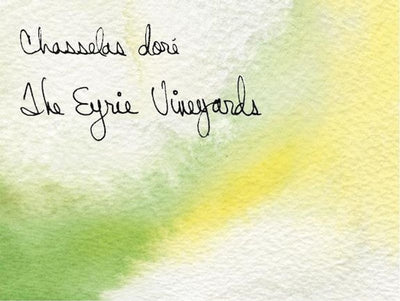 Chasselas doré
The Eyrie Vineyards